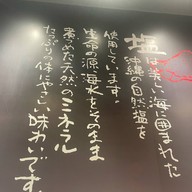 塩は美しい海に囲まれた
沖縄の自然塩を
使用しています。
生命の源海水をそのまま
煮つめた天然のミネラル
たっぷりの体にやさしい味わいです